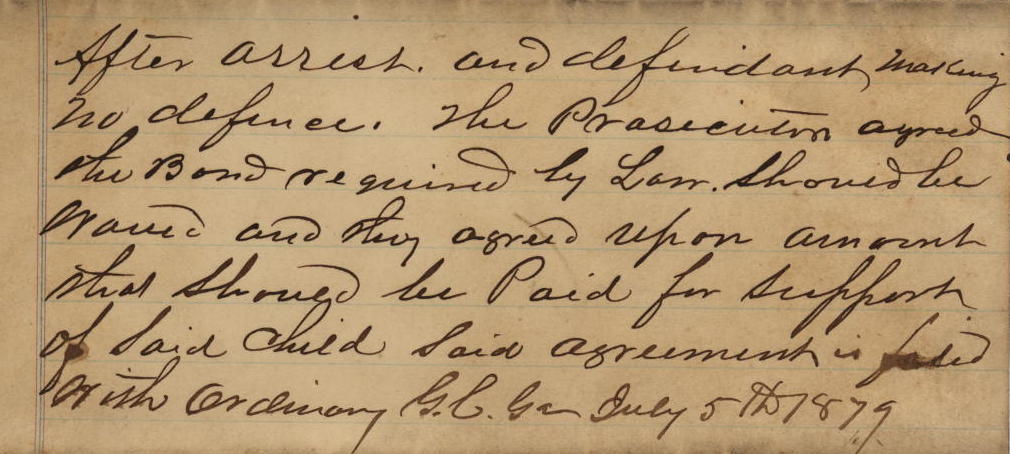 After arrest. and defendant making
no defence. The Prosecutor agreed
the Bond required by Law. Should be
Waved and they agreed upon amount
that should be Paid for support
of Said Child Said agreement is
With Ordinary G.C. Ga July 5TH 1879